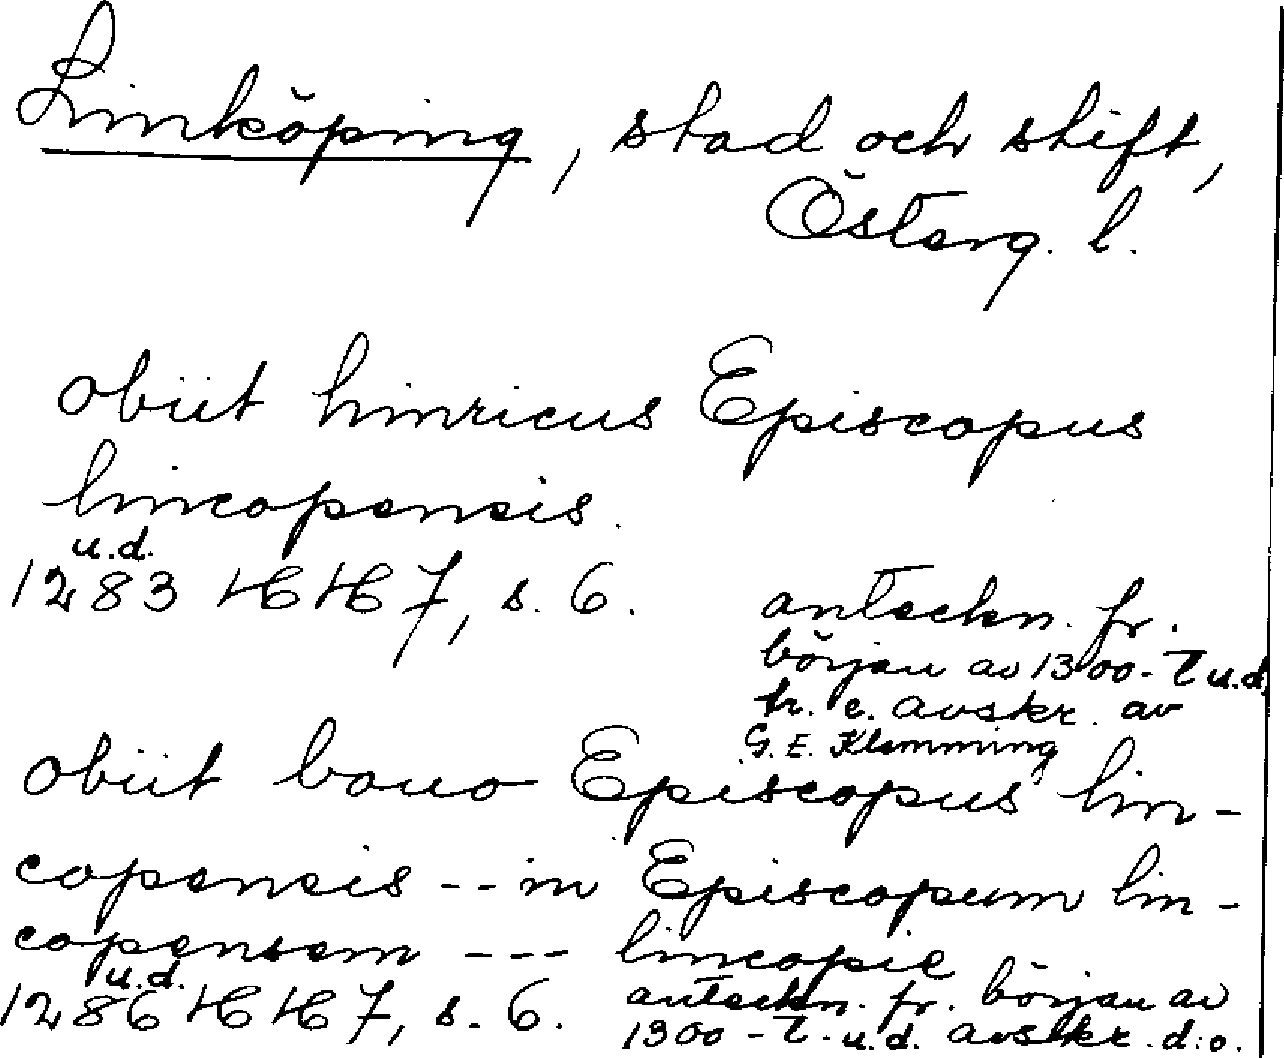 Linköping, stad och stift,
Österg. l.
obiit hinricus Episcopus
lincopensis.
u.d.
1283 HH 7, s. 6.
anteckn. fr.
början av 1300-t u.d.
tr. e. avskr. av
G. E. Klemming
obiit bouo Episcopus lin-
copensis -- in Episcopum lin-
copensem --- lincopie
u.d.
1286 HH 7, s. 6.
anteckn. fr. början av
1300-t. u.d. avskr. d:o.